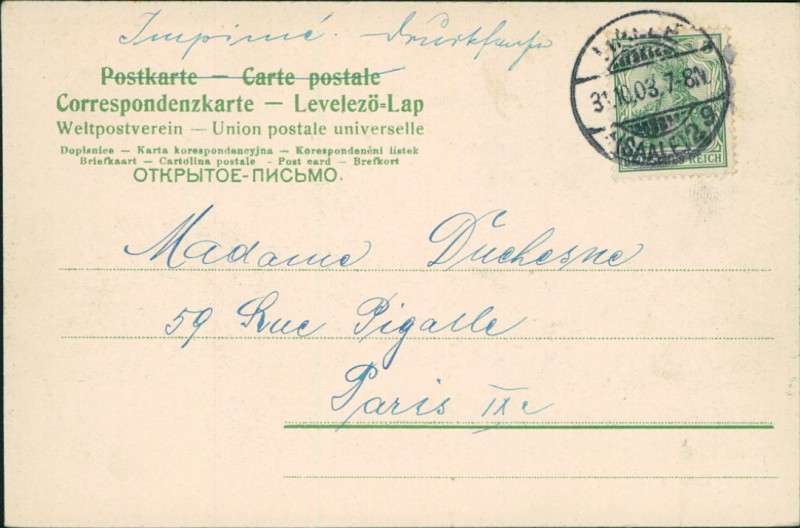 Imprimé. Drucksache
Postkarte — Carte postale
Correspondenzkarte — Levelező-Lap
Weltpostverein — Union postale universelle
Dopisnice — Karta korespondencyjna — Korespondenční listek
Briefkaart — Cartolina postale - Post card — Brefkort
ОТКРЫТОЕ-ПИСЬМО.
HALLE
31.10.03.7-8N.
(SAALE)2
REICH
Madame Duchesne
59 Rue Pigalle
Paris IXe